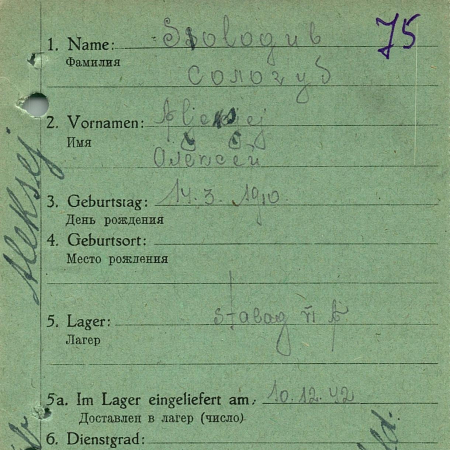 75
1. Name:
Фамилия
Сологуб
2. Vornamen: Aleksej
Имя Алексей
3. Geburtstag: 14.3.1910
День рождения
4. Geburtsort:
Место рождения
Aleksej
5. Lager: Stalag VI
Лагер
5a. Im Lager eingeliefert am: 10.12.42
Доставлен в лагер (число)
6. Dienstgrad: